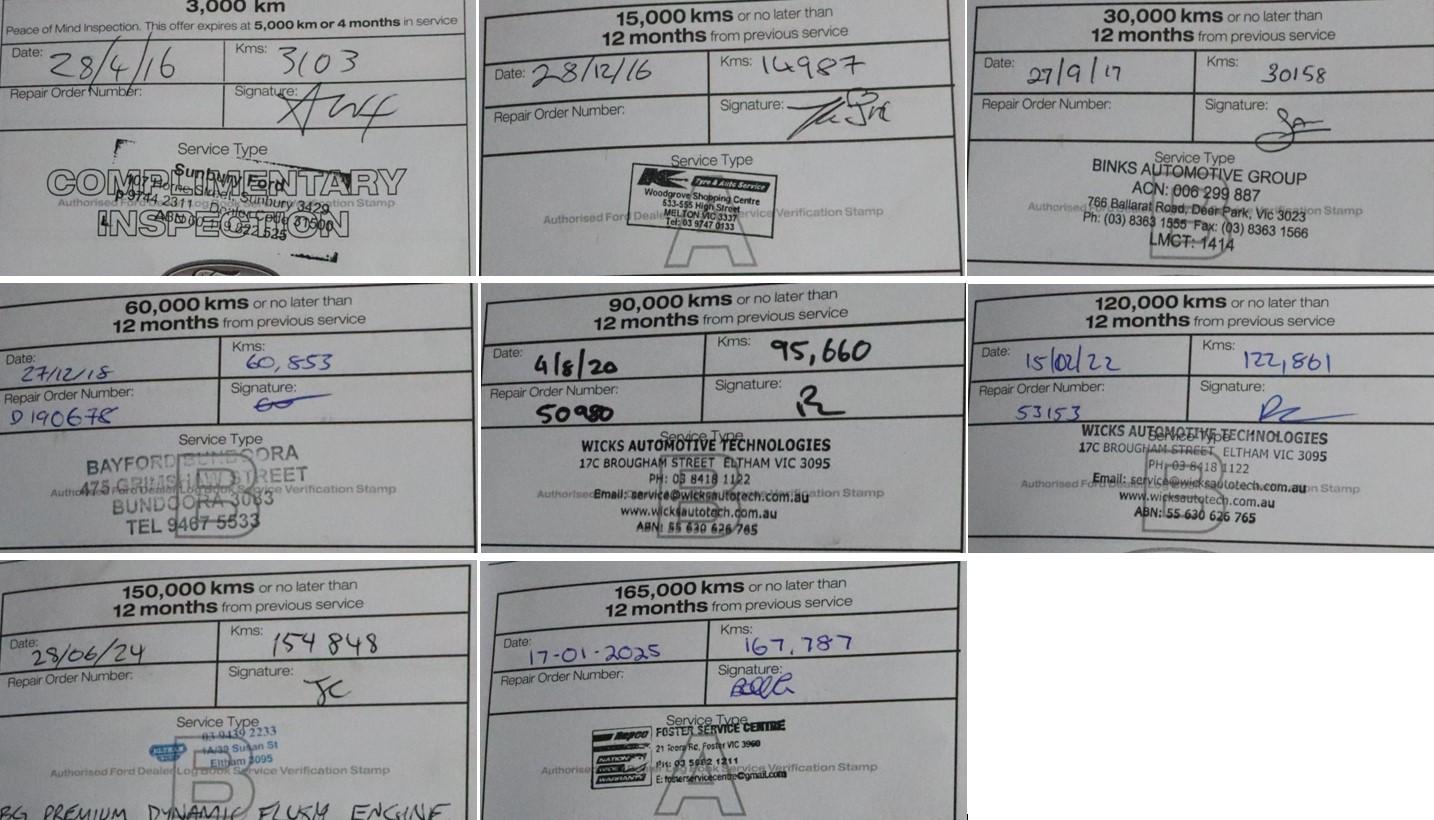 3,000 km
Peace of Mind Inspection. This offer expires at 5,000 km or 4 months in service
Date: 28/4/16
Kms: 3103
Repair Order Number:
Signature:
Service Type
COMPLIMENTARY
INSPECTION
Sunbury Ford
Sunbury 3429
P 9744 2311
15,000 kms or no later than
12 months from previous service
Date: 28/12/16
Kms: 14987
Repair Order Number:
Signature:
Service Type
Tyre & Auto Service
Woodgrove Shopping Centre
533-555 High Street
MELTON VIC 3337
Tel: 03 9747 0133
Authorised Ford Dealer Service Verification Stamp
A
30,000 kms or no later than
12 months from previous service
Date: 27/9/17
Kms: 30158
Repair Order Number:
Signature:
Service Type
BINKS AUTOMOTIVE GROUP
ACN: 006 299 887
766 Ballarat Road, Deer Park, Vic 3023
Ph: (03) 8363 1555 Fax: (03) 8363 1566
LMCT: 1414
B
60,000 kms or no later than
12 months from previous service
Date: 27/12/18
Kms: 60,853
Repair Order Number: D190678
Signature:
Service Type
BAYFORD BUNDOORA
475 GRIMSHAW STREET
BUNDOORA 3083
TEL 9467 5533
Authorised Ford Dealer Log Book Service Verification Stamp
B
90,000 kms or no later than
12 months from previous service
Date: 4/8/20
Kms: 95,660
Repair Order Number: 50980
Signature:
Service Type
WICKS AUTOMOTIVE TECHNOLOGIES
17C BROUGHAM STREET ELTHAM VIC 3095
PH: 03 8418 1122
Email: service@wicksautotech.com.au
www.wicksautotech.com.au
ABN: 55 630 626 765
B
120,000 kms or no later than
12 months from previous service
Date: 15/02/22
Kms: 122,861
Repair Order Number: 53153
Signature:
Service Type
WICKS AUTOMOTIVE TECHNOLOGIES
17C BROUGHAM STREET ELTHAM VIC 3095
PH: 03 8418 1122
Email: service@wicksautotech.com.au
www.wicksautotech.com.au
ABN: 55 630 626 765
B
150,000 kms or no later than
12 months from previous service
Date: 28/06/24
Kms: 154848
Repair Order Number:
Signature: JC
Service Type
03 9439 2233
1A/39 Susan St
Eltham 3095
Authorised Ford Dealer Log Book Service Verification Stamp
B
BG PREMIUM DYNAMIC FLUSH ENGINE
165,000 kms or no later than
12 months from previous service
Date: 17-01-2025
Kms: 167,787
Repair Order Number:
Signature:
Service Type
Repco
NATION
WIDE
WARRANTY
FOSTER SERVICE CENTRE
21 Toora Rd, Foster VIC 3960
PH: 03 5682 1211
E: fosterservicecentre@gmail.com
Authorised Ford Dealer Log Book Service Verification Stamp
A